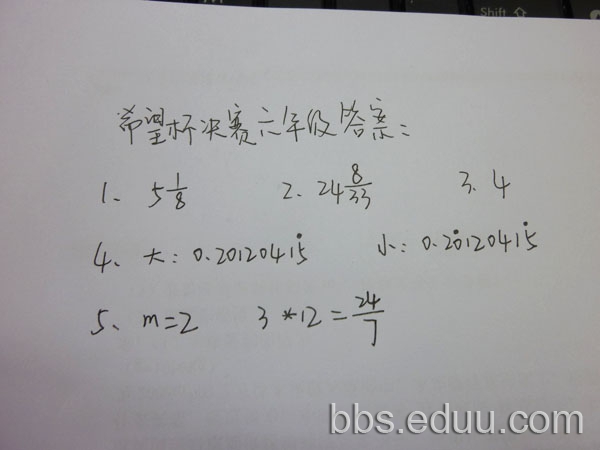 Shift
希望杯决赛六年级答案:
1、 5 1/8 2、 24 8/33 3、 4
4、 大: 0.20120415̇ 小: 0.20̇120415̇
5、 m=2 3*12=24/7
bbs.eduu.com